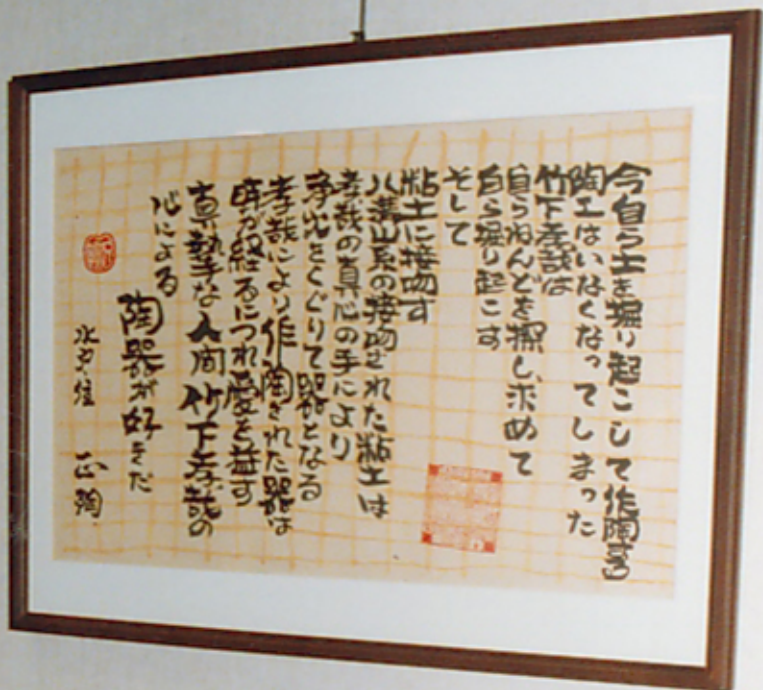 今自ら土を掘り起こして作陶する
陶工はいなくなってしまった
竹下孝哉は
自らねんどを探し求めて
自ら掘り起こす
そして
粘土に接吻す
八溝山系の接吻された粘土は
孝哉の真心の手により
をくぐりて器となる
孝哉により作陶された器は
時が経るにつれ愛を益す
真摯な人間竹下孝哉の
心による
陶器が好きだ
正陶